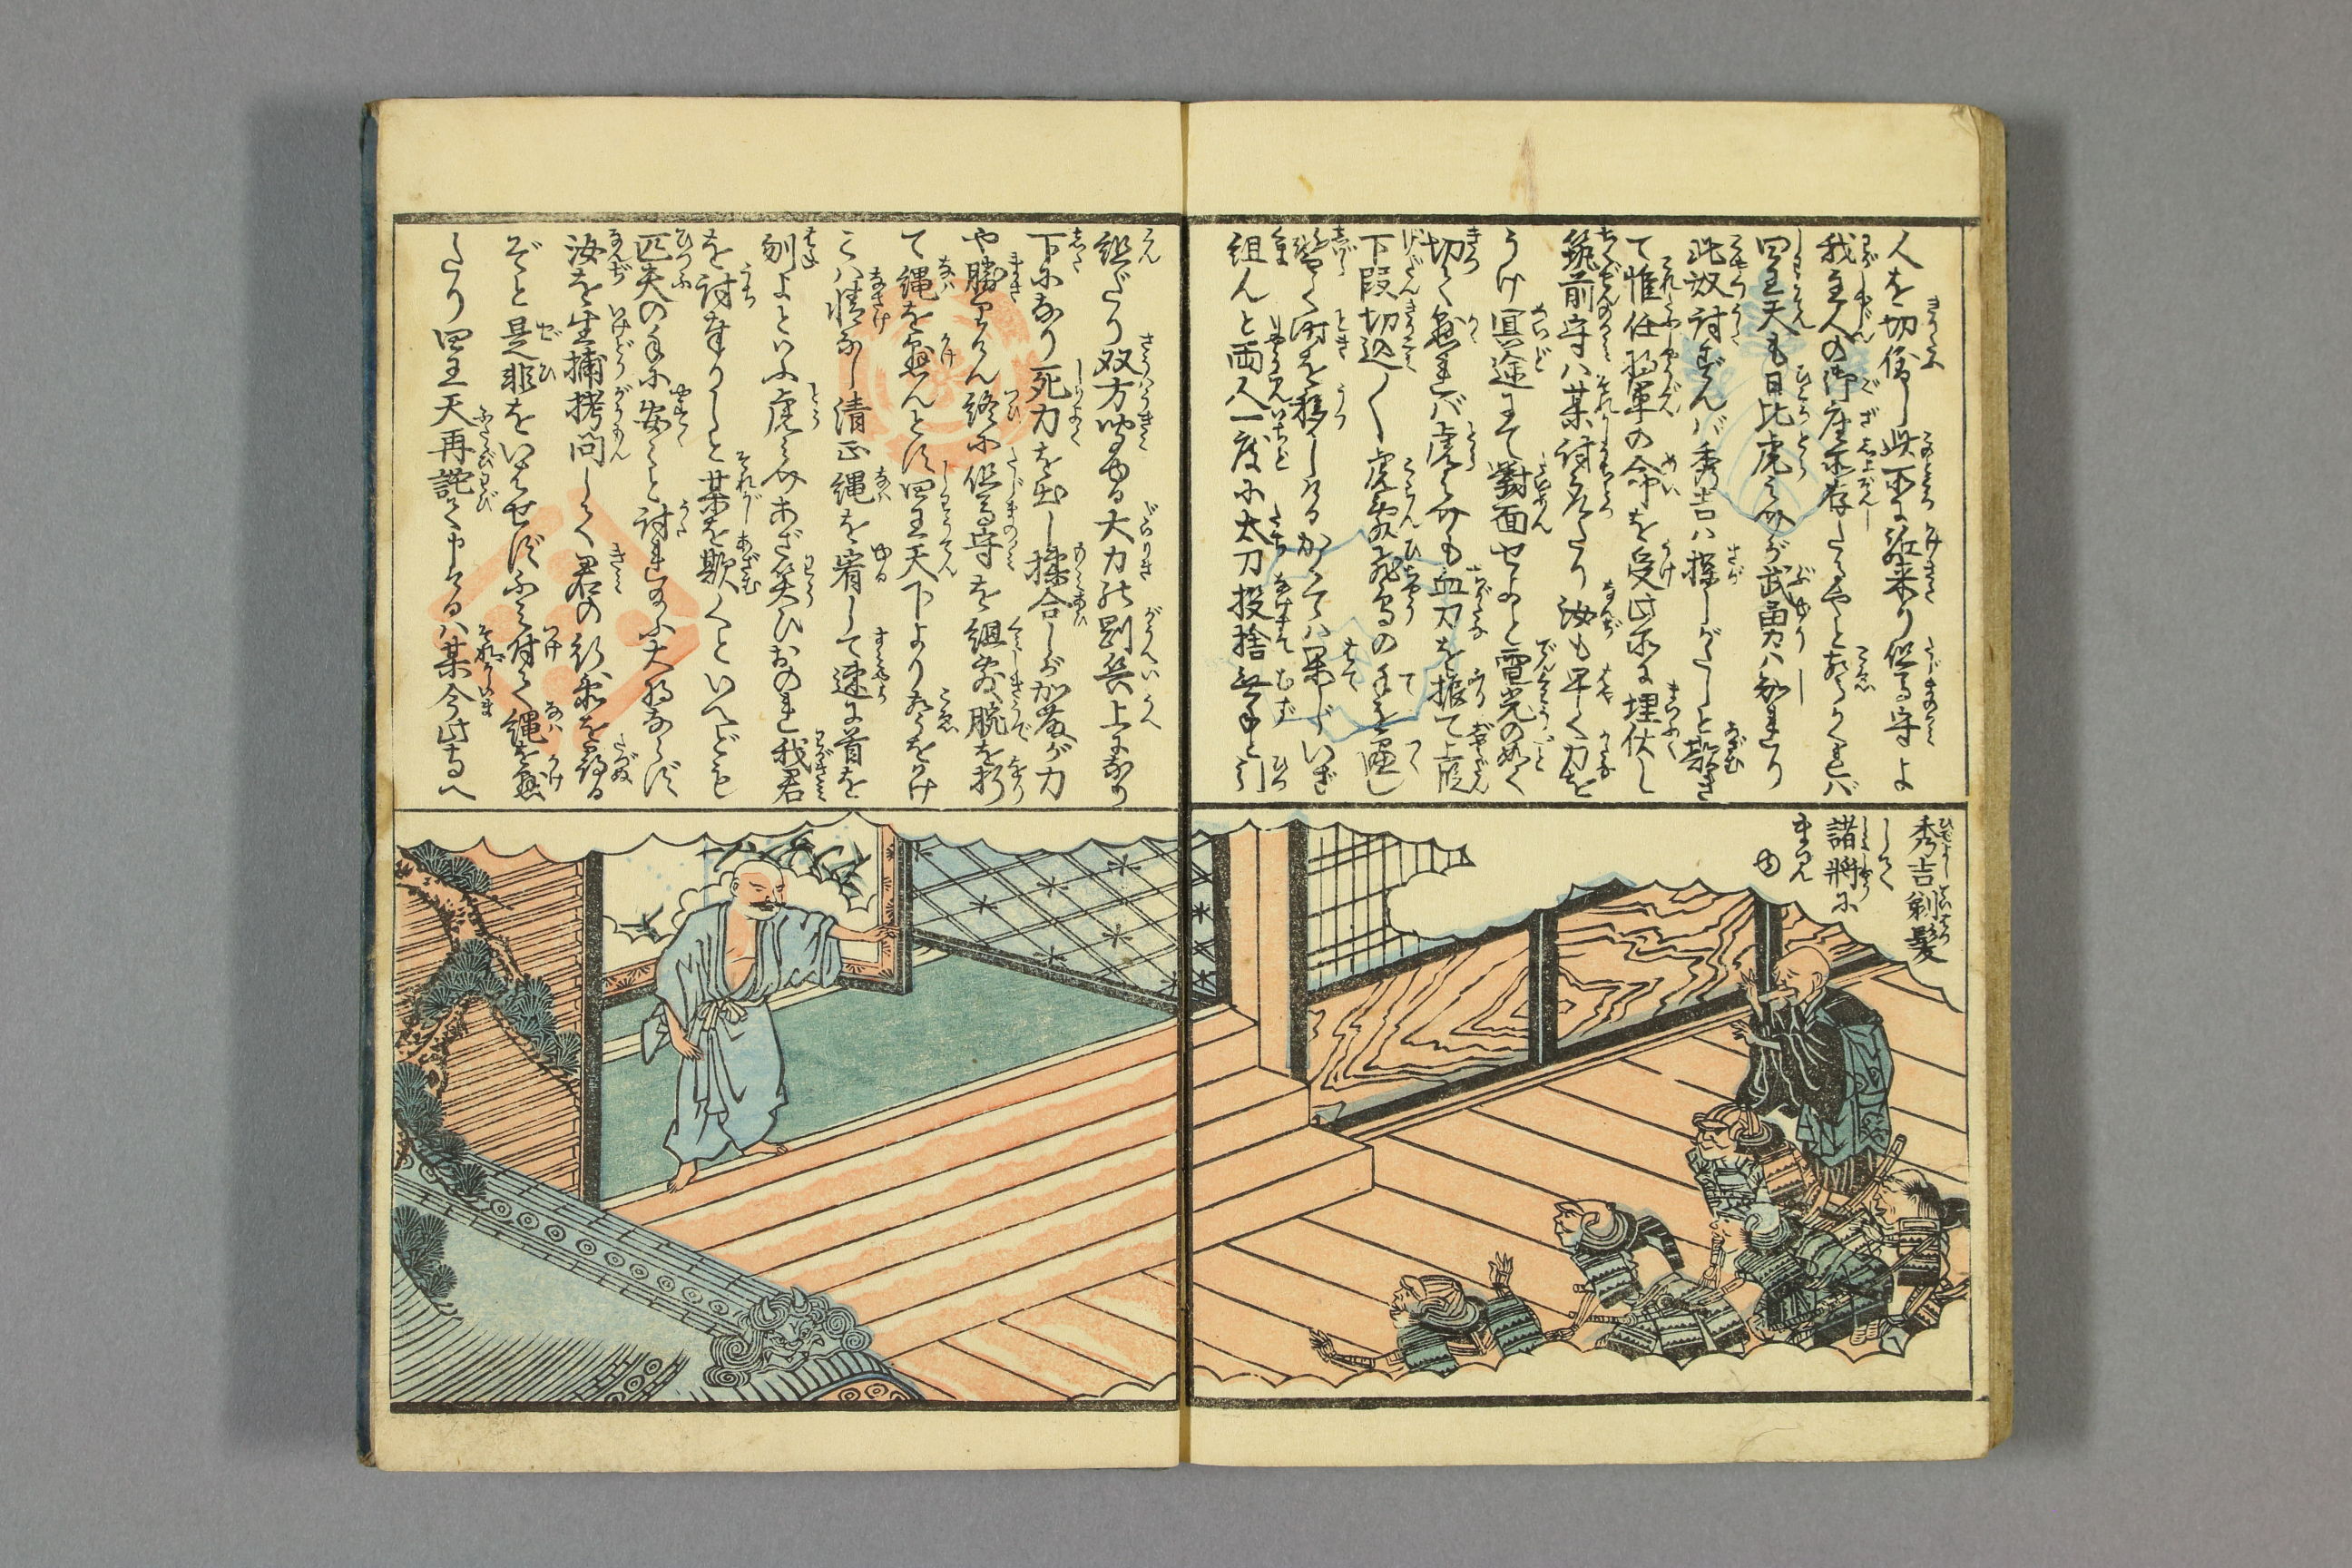 人を切倒し此所に近来り但馬守よ
我主人の御座所存したるやと声かくれバ
四王天も日比虎之助が武勇ハ知れり
此奴討ずんバ秀吉ハ探しがたしと欺き
て惟任将軍の命を受此所に埋伏し
筑前守ハ某討たり汝も早く刀を
うけ冥途にて對面せよと電光の如く
切て懸れバ虎之助も血刀を振て上段
下段切込〳〵虎乱飛鳥の手を盡し
暫く時を移しけるかくてハ果じいざ
組んと両人一度に太刀投捨無手と引
組だり双方聞ゆる大力の剛兵上になり
下になり死力を出し揉合しが加藤が力
や勝りけん終に但馬守を組敷腕を折
て縄を懸んとす四王天下より声をかけ
こハ情なし清正縄を宥して速に首を
刎よといふ虎之助あざ笑ひおのれ我君
を討奉りしと某を欺くといへども
匹夫の手に安〻と討れ給ふ大将ならず
汝を生捕拷問して君の行衛を尋る
ぞと是非をいはせずふみ付て縄を懸
たり四王天再詫て申けるハ某今此場へ
秀吉剃髪
して
諸将に
まみゆ